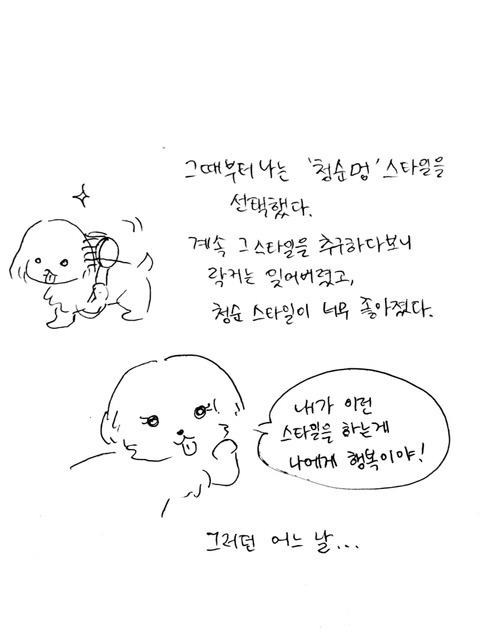 그때부터 나는 '청순멍' 스타일을
선택했다.
계속 그 스타일을 추구하다보니
락커는 잊어버렸고,
청순 스타일이 너무 좋아졌다.
내가 이런
스타일을 하는게
나에게 행복이야!
그러던 어느 날...